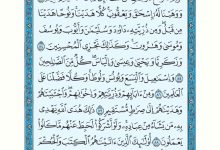 وَوَهَبْنَا لَهُۥٓ إِسْحَٰقَ وَيَعْقُوبَ كُلًّا هَدَيْنَا وَنُوحًا هَدَيْنَا
مِن قَبْلُ وَمِن ذُرِّيَّتِهِۦ دَاوُۥدَ وَسُلَيْمَٰنَ وَأَيُّوبَ وَيُوسُفَ
وَمُوسَىٰ وَهَٰرُونَ وَكَذَٰلِكَ نَجْزِى ٱلْمُحْسِنِينَ
وَزَكَرِيَّا وَيَحْيَىٰ وَعِيسَىٰ وَإِلْيَاسَ كُلٌّ مِّنَ ٱلصَّٰلِحِينَ
وَإِسْمَٰعِيلَ وَٱلْيَسَعَ وَيُونُسَ وَلُوطًا وَكُلًّا فَضَّلْنَا عَلَى
ٱلْعَٰلَمِينَ وَمِنْ ءَابَآئِهِمْ وَذُرِّيَّٰتِهِمْ وَإِخْوَٰنِهِمْ وَٱجْتَبَيْنَٰهُمْ
وَهَدَيْنَٰهُمْ إِلَىٰ صِرَٰطٍ مُّسْتَقِيمٍ ذَٰلِكَ هُدَى ٱللَّهِ يَهْدِى
بِهِۦ مَن يَشَآءُ مِنْ عِبَادِهِۦ وَلَوْ أَشْرَكُوا۟ لَحَبِطَ عَنْهُم مَّا كَانُوا۟
يَعْمَلُونَ أُو۟لَٰٓئِكَ ٱلَّذِينَ ءَاتَيْنَٰهُمُ ٱلْكِتَٰبَ وَٱلْحُكْمَ